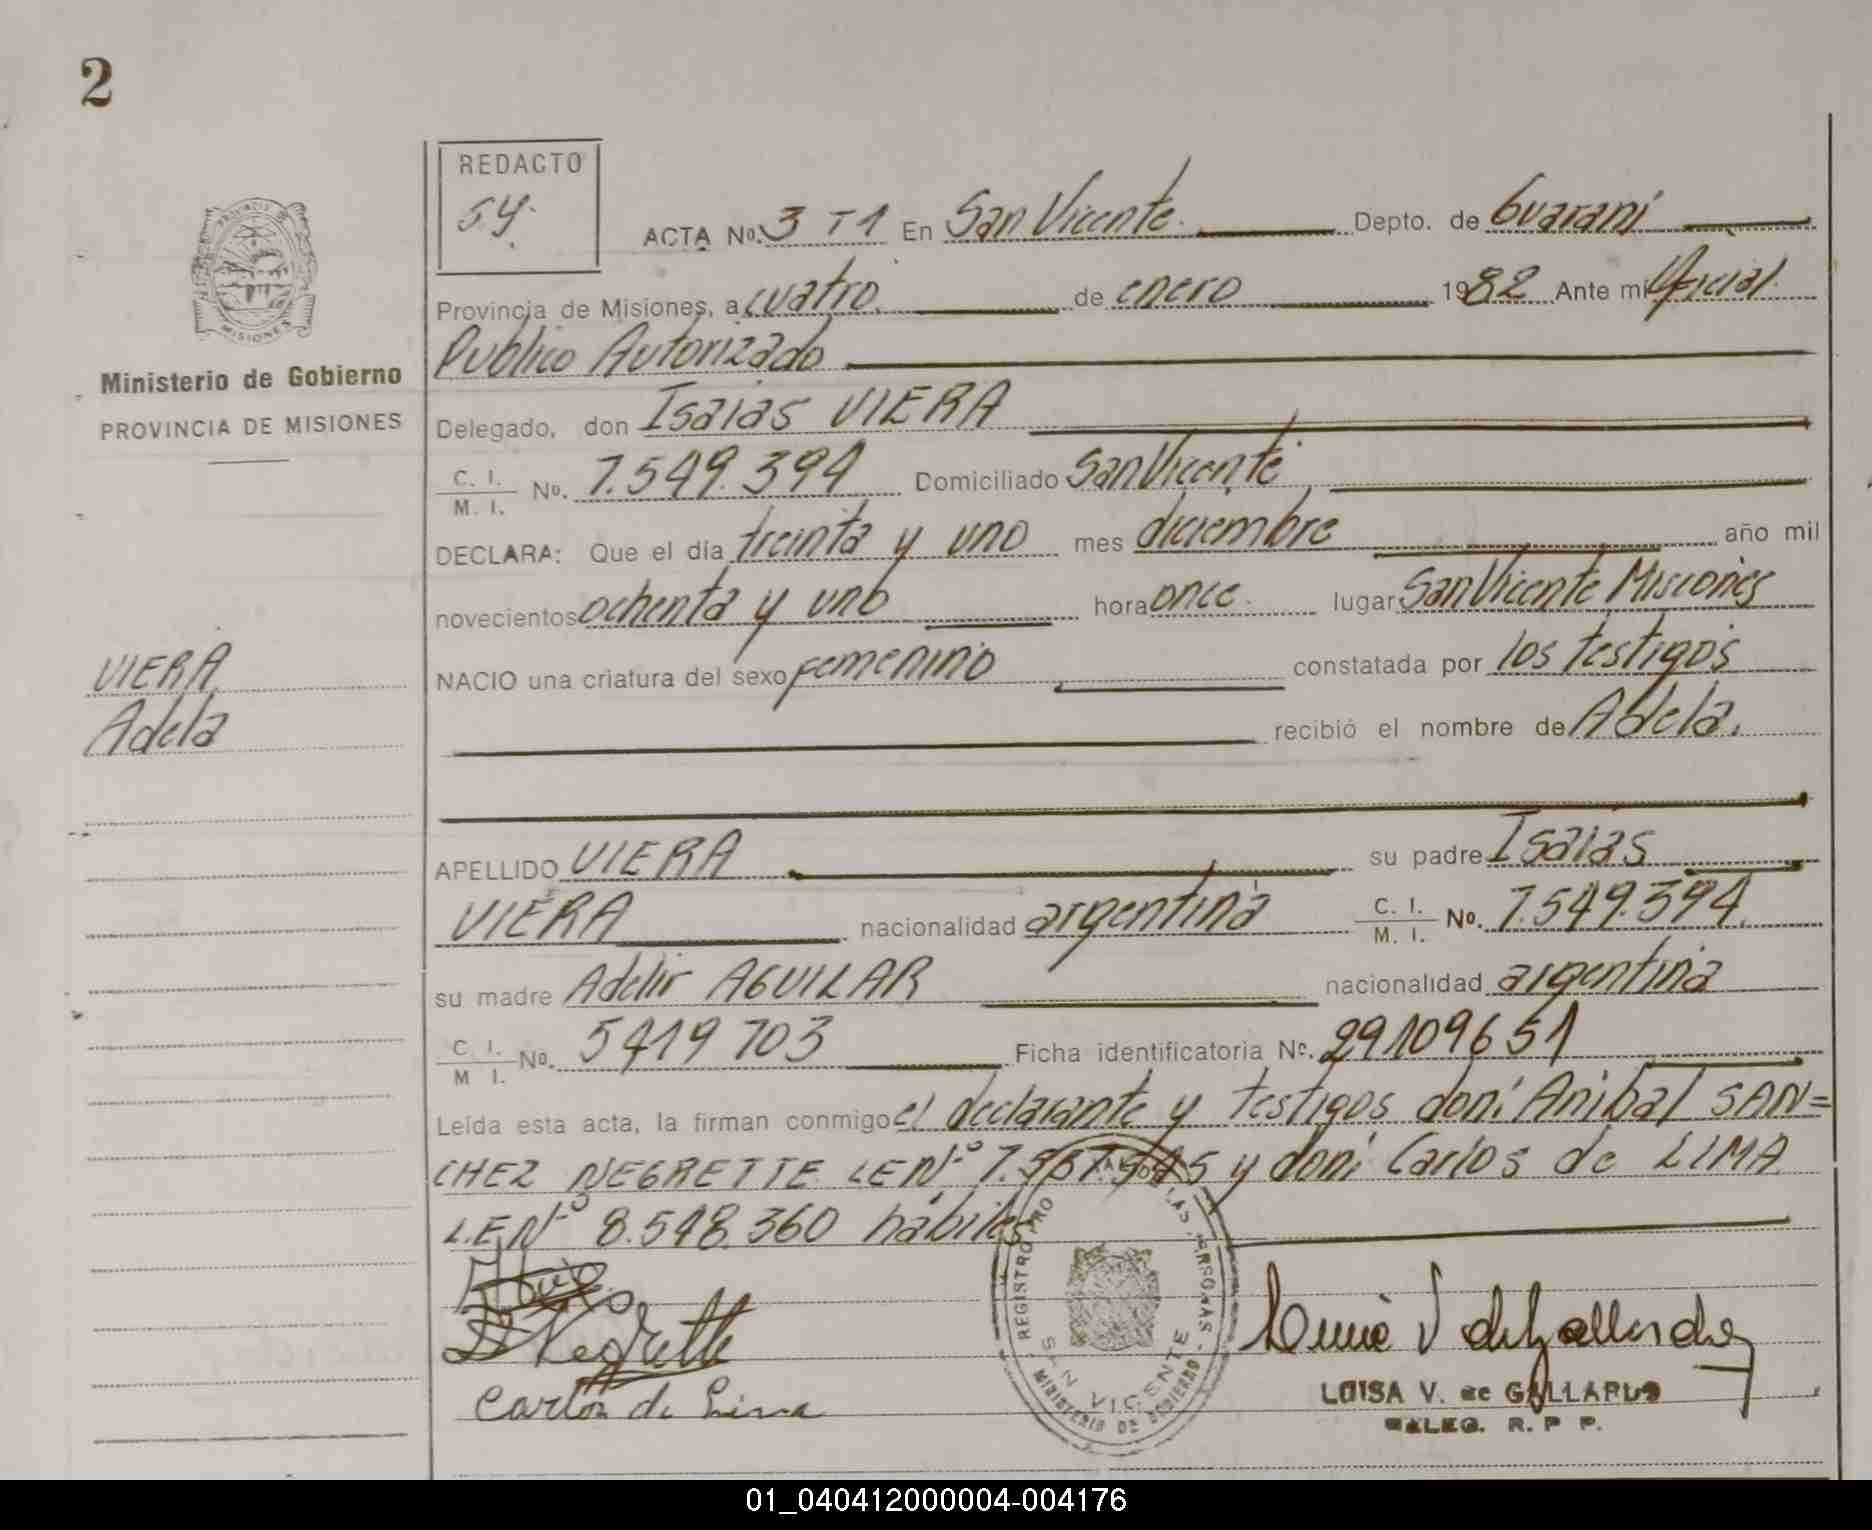 2
REDACTO
ACTA No. 3 T1 En San Vicente. Depto. de Guaraní
Provincia de Misiones, a cuatro de enero 1982 Ante mi Oficial
Publico Autorizado
PROVINCIA DE MISIONES
Ministerio de Gobierno
PROVINCIA DE MISIONES
Delegado, don Isaias VIERA
C. I.
M. I. No. 7.549.394 Domiciliado San Vicente
DECLARA: Que el día treinta y uno mes diciembre año mil
novecientos ochenta y uno hora once. lugar San Vicente Misiones
VIERA
Adela
NACIO una criatura del sexo femenino constatada por los testigos
recibió el nombre de Adela.
APELLIDO VIERA su padre Isaias
VIERA nacionalidad argentina C. I.
M. I. No. 7.549.394.
su madre Adelir AGUILAR nacionalidad argentina
C. I.
M I. No. 5419 703 Ficha identificatoria No. 29109651
Leída esta acta, la firman conmigo el declarante y testigos don: Anibal SAN=
CHEZ NEGRETTE LE Nº y don: Carlos de LIMA
L.E Nº 8.548.360 hábiles
Negrette
Carlos de Lima
REGISTRO PRO DE LAS PERSONAS
SAN VICENTE
MINISTERIO DE GOBIERNO
LUISA V. de GALLARDO
DELEG. R. P P.
01_040412000004-004176